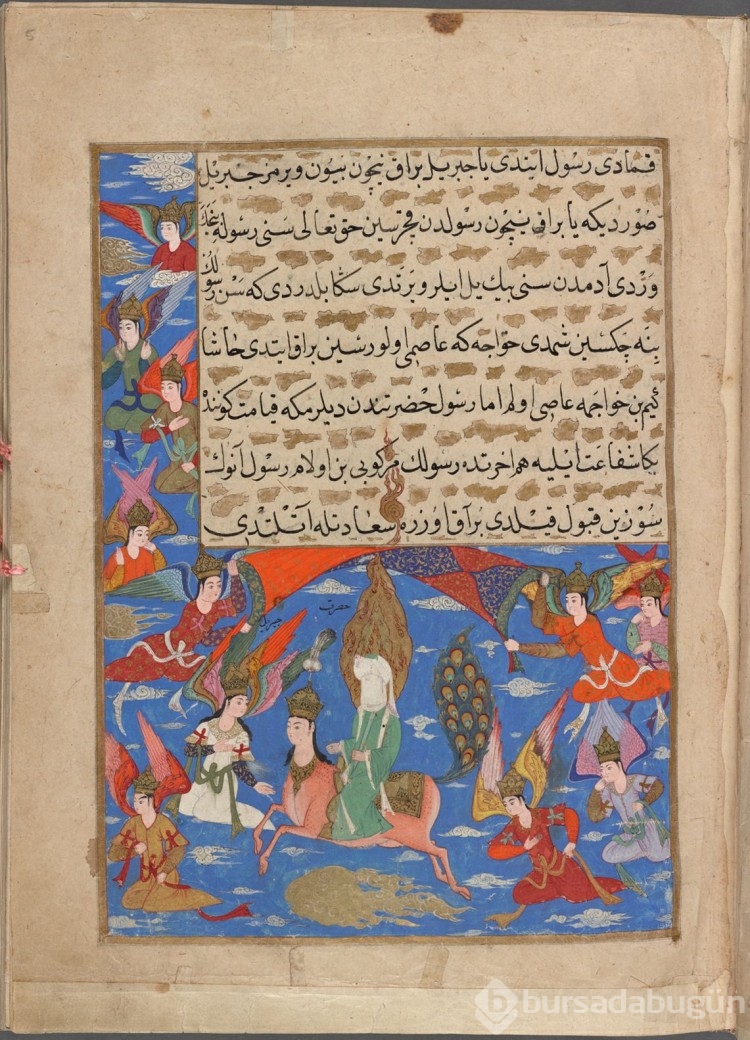 5
قمادی رسول ایتدی یا جبریل براق نیچون بیون ویرمز جبریل
صوردیکه یا براق نیچون رسولدن قچرسین حق تعالی سنی رسوله
وردی آدمدن سنی بیك ییل ایلرو یرتدی سکا بلدردی که سن رسولك
بنه جکسین شمدی خواجه که عاصمی اولورسین براق ایتدی حاشا
کیم بن خواجمه عاصی اولم اما رسول حضرتندن دیلرم که قیامت کوننده
بکا شفاعت ایلیه هم اخرتده رسولك مرکوبی بن اولام رسول آنوك
سوزین قبول قیلدی براق اوزره سعادتله آتلندی
حضرت
جبریل
bursadabugün